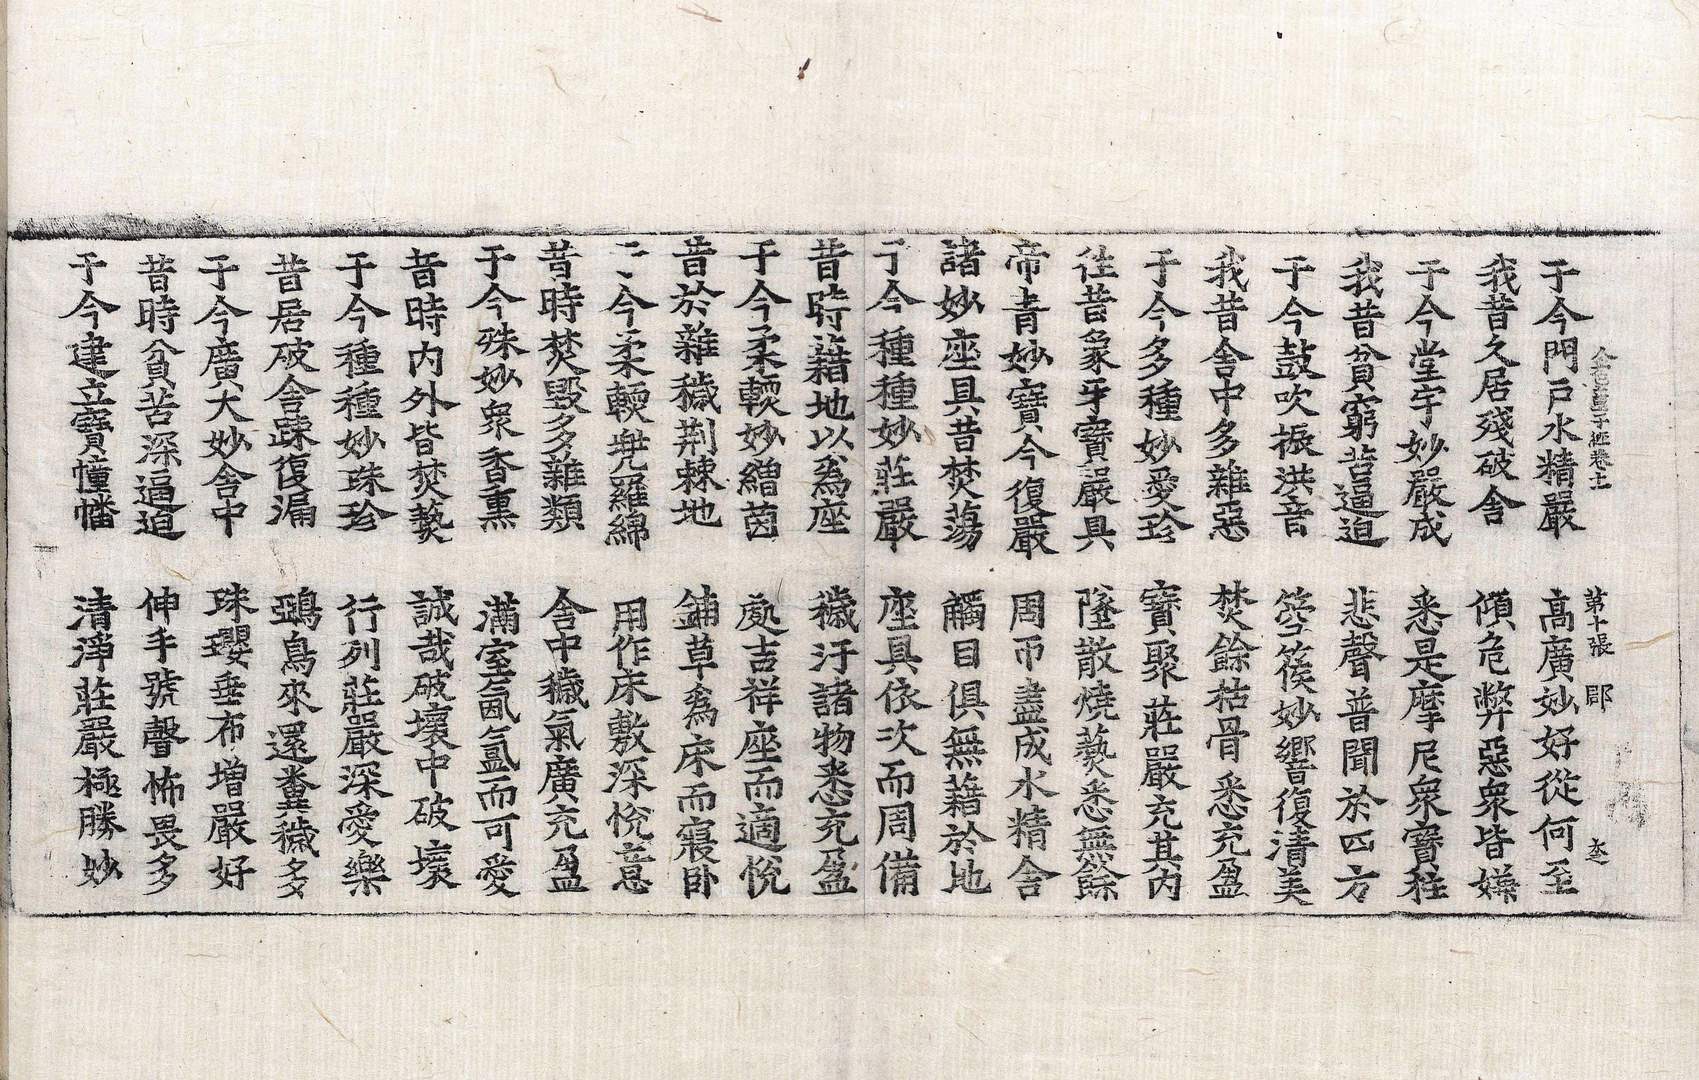 第十張 郡
于今門戶水精嚴 高廣妙好從何至
我昔久居殘破舍 傾危弊惡衆皆嫌
于今堂宇妙嚴成 悉是摩尼衆寶柱
我昔貧窮苦逼迫 悲聲普聞於四方
于今鼓吹振洪音 箜篌妙響復清美
我昔舍中多雜惡 焚餘枯骨悉充盈
于今多種妙愛珍 寶聚莊嚴充其内
往昔象牙寶嚴具 墜散燒爇悉無餘
帝青妙寶今復嚴 周帀盡成水精舍
諸妙座具昔焚蕩 觸目俱無藉於地
于今種種妙莊嚴 座具依次而周備
昔時藉地以爲座 穢汙諸物悉充盈
于今柔輭妙繒茵 處吉祥座而適悅
昔於雜穢荆棘地 鋪草爲床而寢卧
今柔輭兠羅綿 用作床敷深悅意
昔時焚毀多雜類 舍中穢氣廣充盈
于今殊妙衆香熏 滿室氤氳而可愛
昔時内外皆焚爇 誠哉破壞中破壞
于今種種妙珠珍 行列莊嚴深愛樂
昔居破舍踈復漏 鵶鳥來還糞穢多
于今廣大妙舍中 珠瓔垂布增嚴好
昔時貧苦深逼迫 伸手號聲怖畏多
于今建立寶幢幡 清淨莊嚴極勝妙